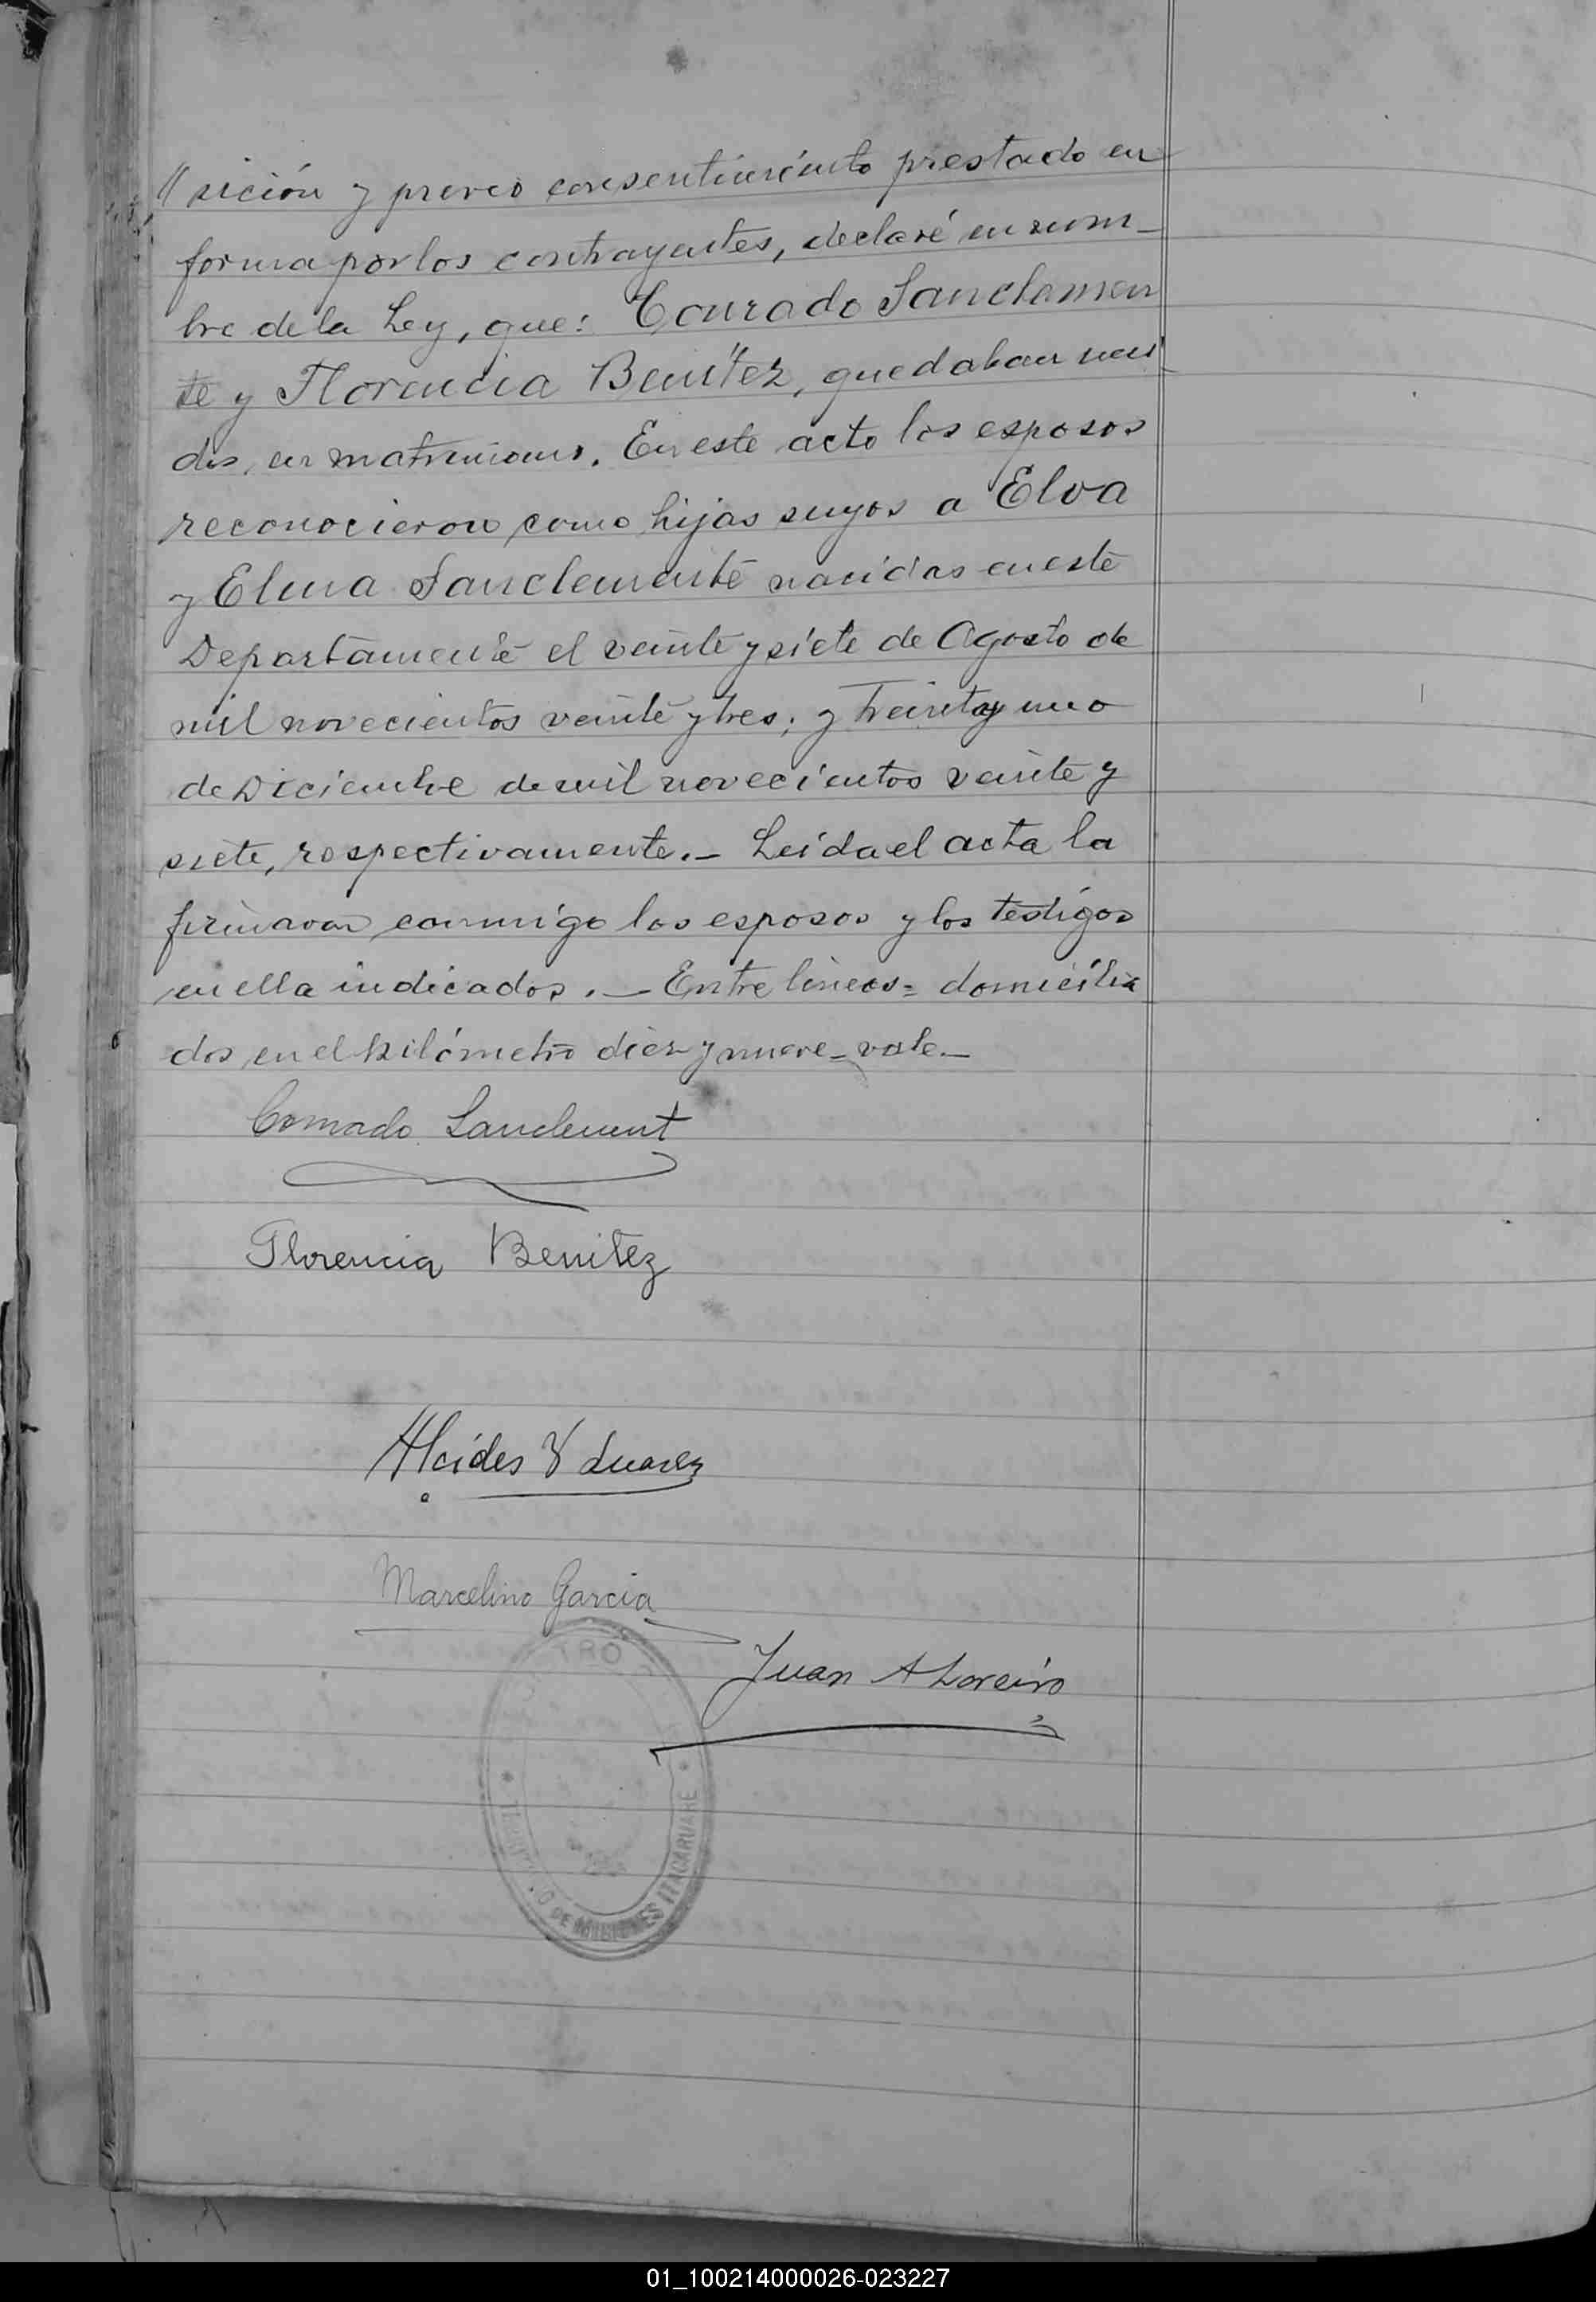 // sición y previo consentimiento prestado en
forma por los contrayentes, declaré en nom-
bre de la Ley, que: Conrado Sanclemen
te y Florencia Benítez, quedaban uni
dos, en matrimonio. En este acto los esposos
reconocieron como hijas suyos a Elva
y Elma Sanclemente nacidas en este
Departamento el veinte y siete de Agosto de
mil novecientos veinte y tres; y treinta y uno
de Diciembre de mil novecientos veinte y
siete, respectivamente.- Leída el acta la
firmaron conmigo los esposos y los testigos
en ella indicados.- Entre líneas= domicilia
dos en el kilómetro diez y nueve-vale-
Conrado Sanclement
Florencia Benitez
Alcides Suarez
Marcelino Garcia
Juan A Loreiro
TRO
O DE MISIONES ITACARUARE
01_100214000026-023227